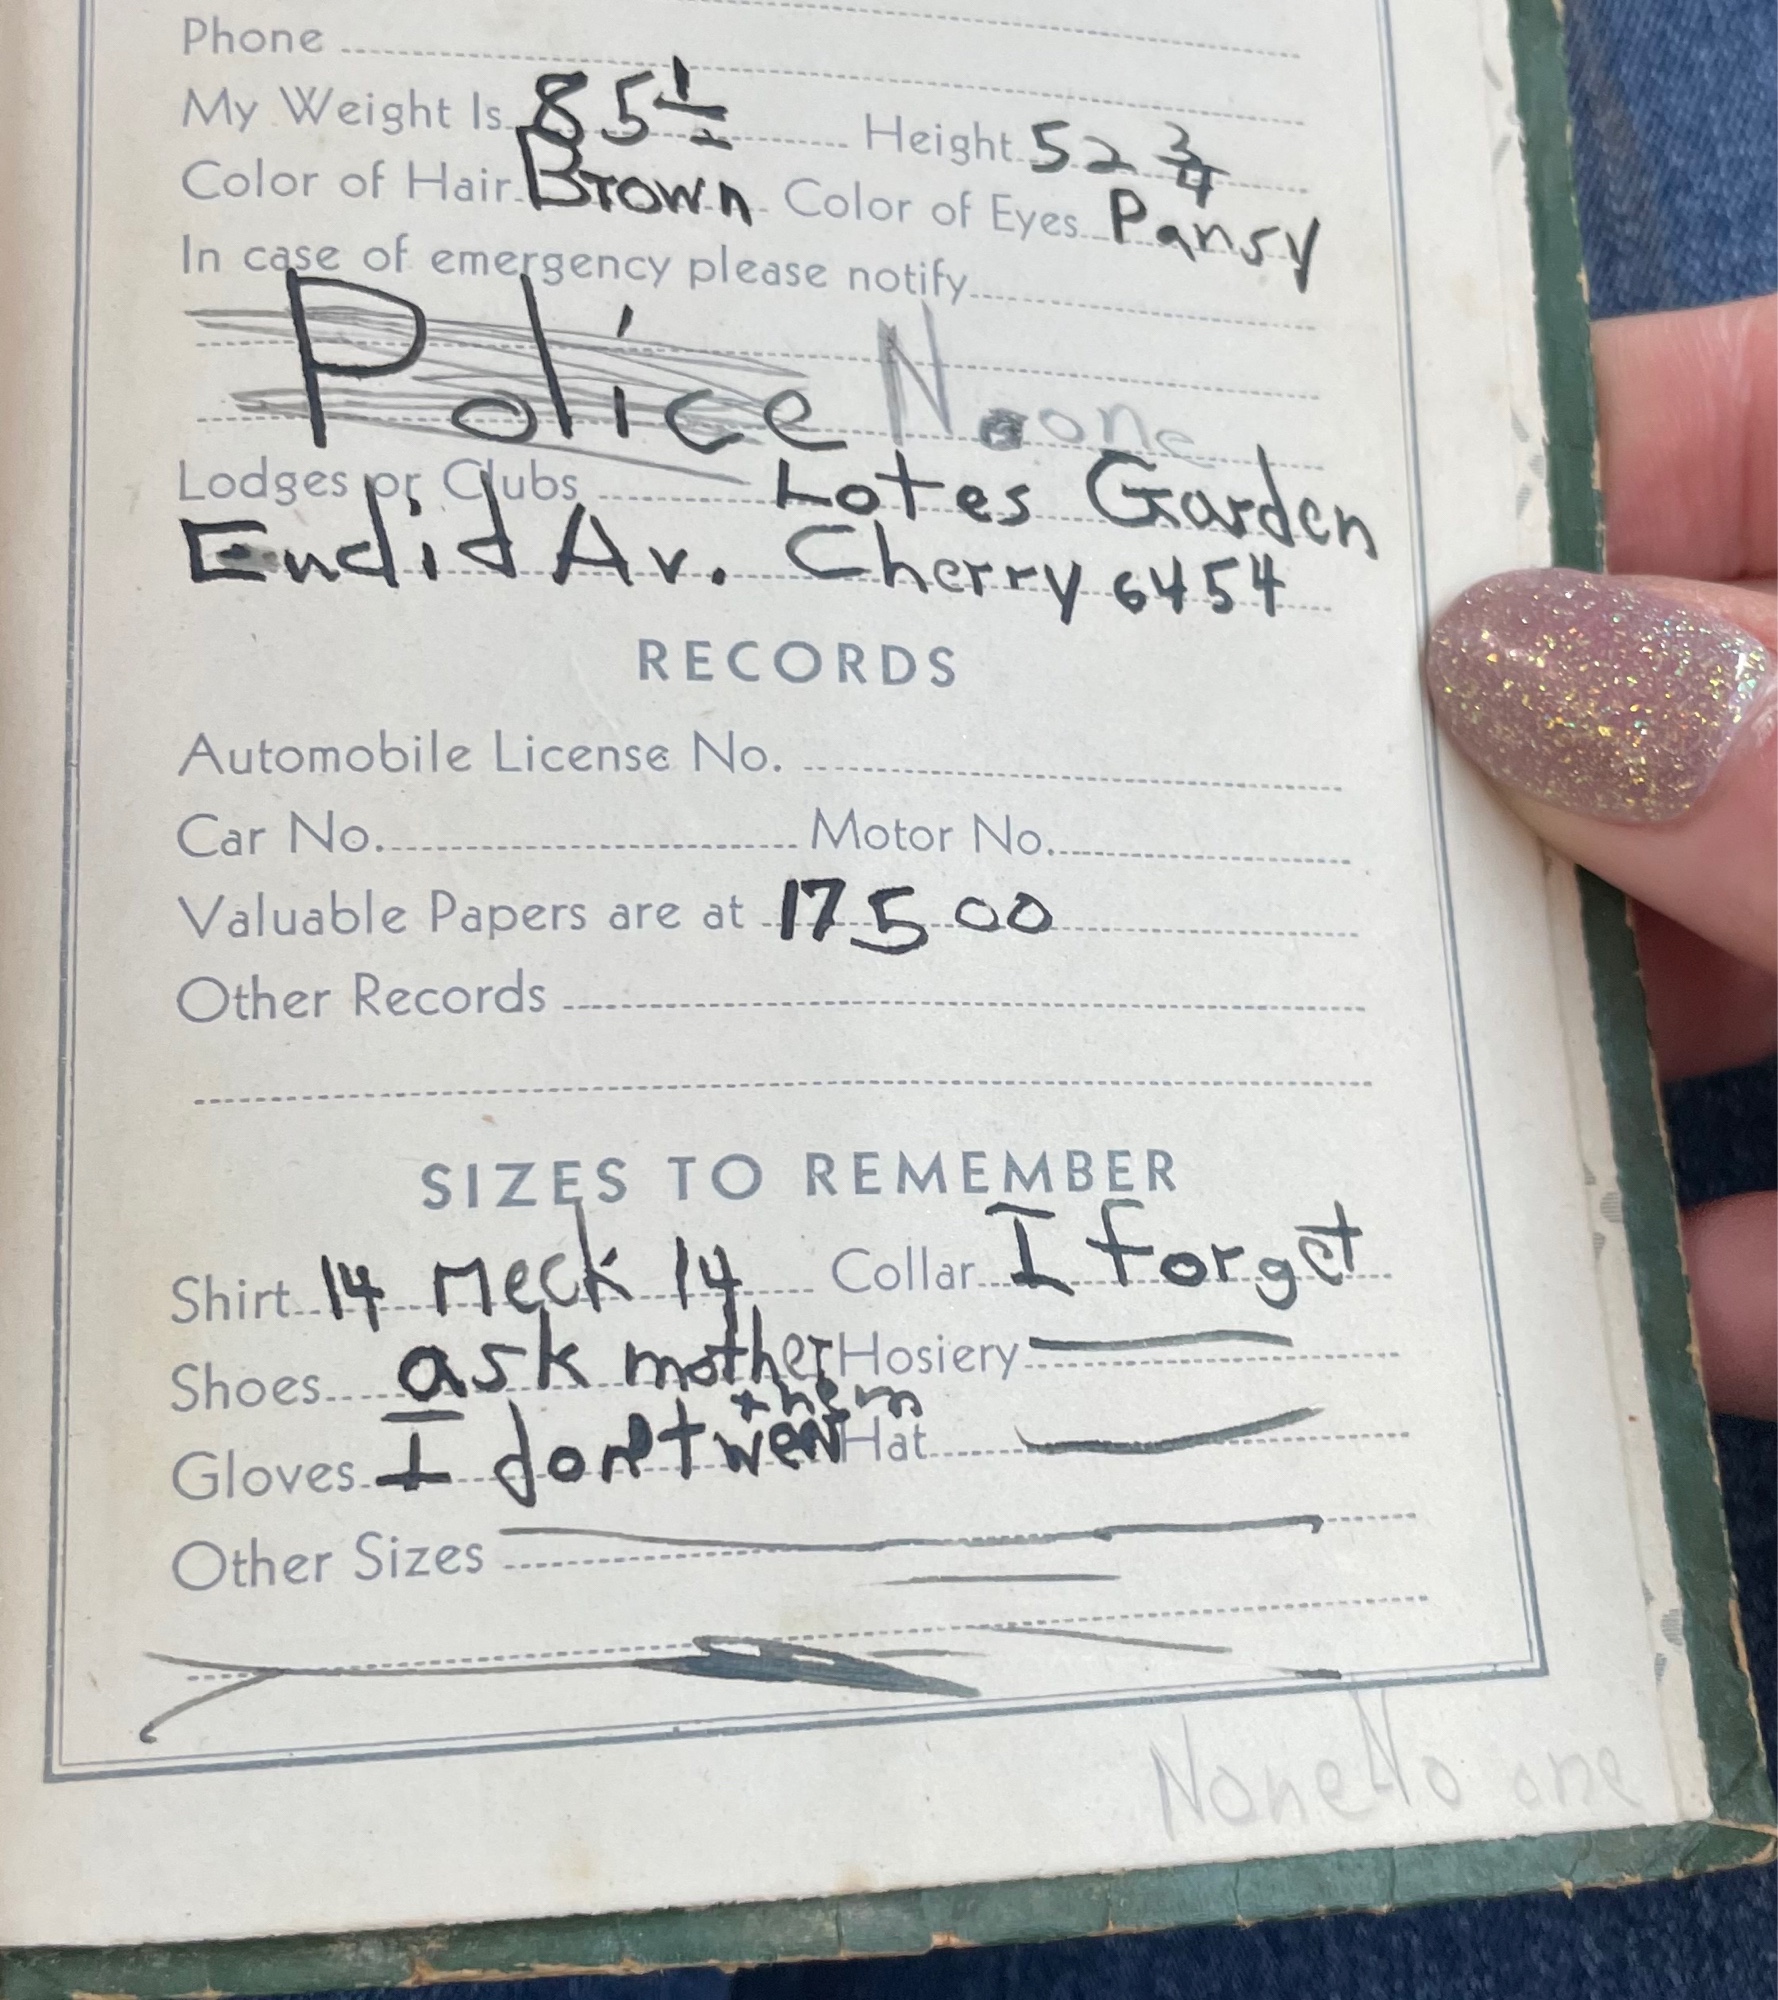 Phone
My Weight Is 85 1/2 Height 52 3/4
Color of Hair Brown Color of Eyes Pansy
In case of emergency please notify
Police Noone
Lodges or Clubs Lotes Garden
Euclid Av. Cherry 6454
RECORDS
Automobile License No.
Car No. Motor No.
Valuable Papers are at 175 00
Other Records
SIZES TO REMEMBER
Shirt 14 neck 14 Collar I forget
Shoes ask mother Hosiery
them
Gloves I don't wear Hat
Other Sizes
None No one